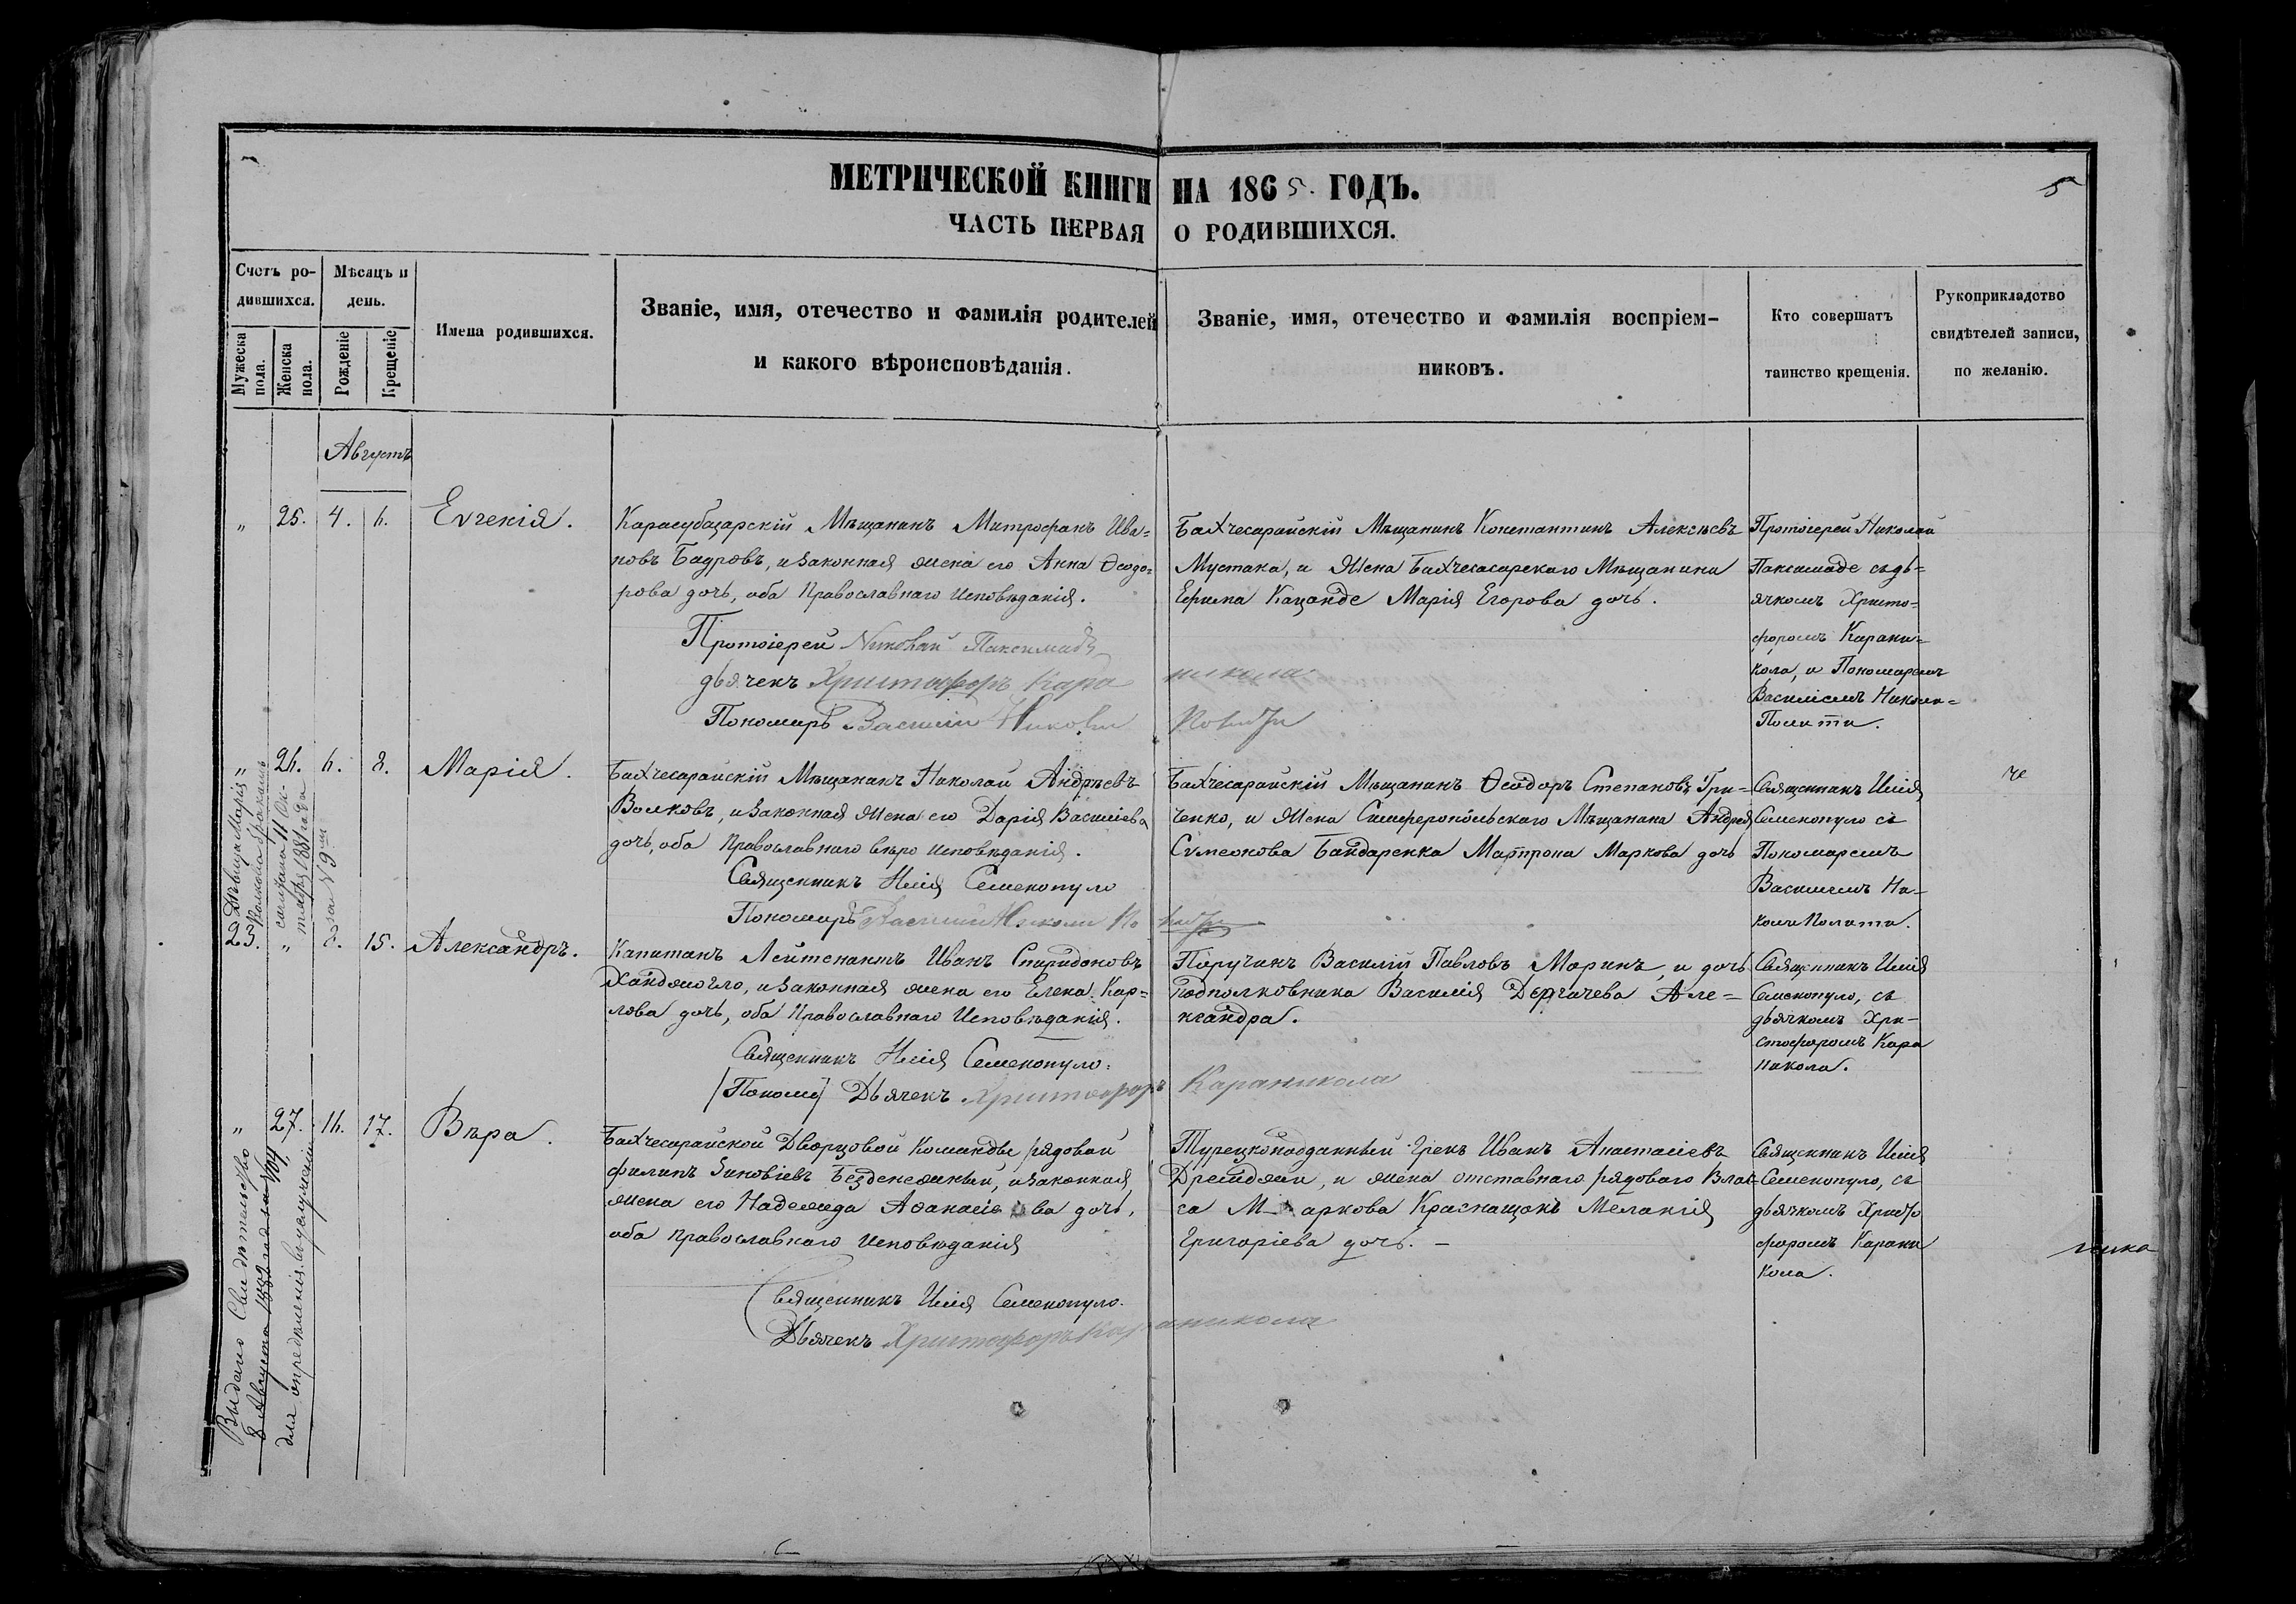 МЕТРИЧЕСКОЙ КНИГИ НА 1865. ГОДЪ.
5
ЧАСТЬ ПЕРВАЯ О РОДИВШИХСЯ.
Счетъ ро-
дившихся.
Мѣсяцъ и
день.
Мужеска
пола.
Женска
пола.
Рожденіе
Крещеніе
Имена родившихся.
Званіе, имя, отечество и фамилія родителей
и какого вѣроисповѣданія.
Званіе, имя, отечество и фамилія воспріем-
никовъ.
Кто совершатъ
таинство крещенія.
Рукоприкладство
свидѣтелей записи,
по желанію.
Августъ
„ 25. 4. 6. Евгенія.
Карасубазарскій Мѣщанинъ Митрофанъ Ива=
новъ Бадровъ, и законная жена его Анна Ѳеодо=
рова дочь, оба Православнаго исповѣданія.
Протоіерей Николай Паксимадъ
дьячекъ Христофоръ Кара никола
Пономарь Василій Николи Полити
Бахчесарайскій Мѣщанинъ Константинъ Алексѣевъ
Мустака, и Жена Бахчесасарскаго Мѣщанина
Ефима Кацонде Марія Егорова дочь.
Протоіерей Николай
Паксимаде съ дь=
ячкомъ Христо=
форомъ Карани=
кола, и Пономаремъ
Василіемъ Николи=
Полити.
„ 26. 6. 8. Марія.
Бахчесарайскій Мѣщанинъ Николай Андрѣевъ
Волковъ, и законная жена его Дарія Василіева
дочь, оба Православнаго вѣроисповѣданія.
Священникъ Илія Семенопуло
Пономарь Василій Николи По лити
Бахчесарайскій Мѣщанинъ Ѳеодоръ Степановъ Гри=
ченко, и Жена Симферопольскаго Мѣщанина Андрея
Сумеонова Бандаренка Матрона Маркова дочь
Священникъ Илія
Семенопуло съ
Пономаремъ
Василіемъ Ни-
коли Полити.
че
Дѣвица Марія
Волкова бракомъ
сочетана 11 Ок-
тября 1881 года
за № 9 мъ
23. „ 8. 15. Александръ.
Капитанъ Лейтенантъ Иванъ Спиридоновъ
Ханджогло, и законная жена его Елена Кар=
лова дочь, оба Православнаго Исповѣданія.
Священникъ Илія Семенопуло.
[Поном] Дьячекъ Христофоръ Караникола
Поручикъ Василій Павловъ Маринъ, и дочь
подполковника Василія Дергачева Але=
ксандра.
Священникъ Илія
Семенопуло, съ
дьячкомъ Хри-
стофоромъ Кара
никола.
„ 27. 16. 17. Вѣра.
Бахчесарайской Дворцовой Команды рядовой
Филипъ Зиновіевъ Безденежный, и законная
жена его Надежда Аѳанасіева дочь,
оба православнаго Исповѣданія
Священникъ Илія Семенопуло.
Дьячекъ Христофоръ Караникола
Турецкоподданный Грекъ Иванъ Анастасіевъ
и жена отставнаго рядоваго Влас=
са Маркова Меланія
Григоріева дочь. –
Священникъ Илія
Семенопуло, съ
дьячкомъ Христо
форомъ Карани
кола.
Выдано Свидѣтельство
8 Августа 1882 года за № 104,
для опредѣленія въ